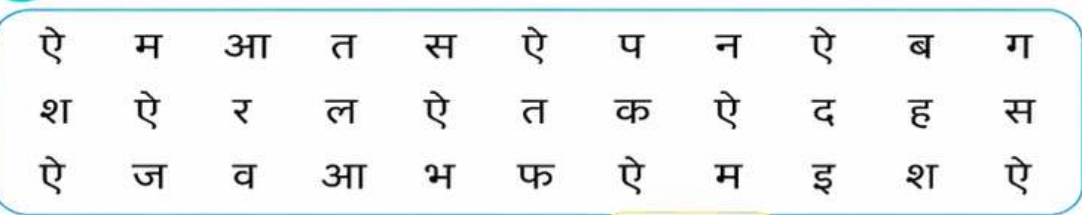 ऐ म आ त स ऐ प न ऐ ब ग
श ऐ र ल ऐ त क ऐ द ह स
ऐ ज व आ भ फ ऐ म इ श ऐ